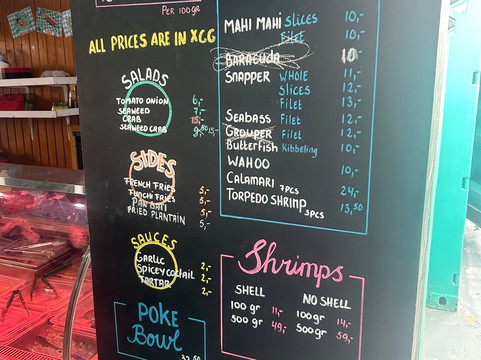 PER 100gr
ALL PRICES ARE IN XCG
SALADS
TOMATO ONION 6,-
SEAWEED 7,-
CRAB
SEAWEED CRAB
SIDES
FRENCH FRIES 5,-
FUNCHI FRIES 5,-
PAN BATI 5,-
FRIED PLANTAIN 5,-
SAUCES
GARLIC 2,-
SPICEY COCTAIL 2,-
TARTAR 2,-
POKE
Bowl
MAHI MAHI SLICES 10,-
Filet 10,-
BARACUDA 10
SNAPPER WHOLE 11,-
SLICES 12,-
Filet 13,-
SEABASS Filet 12,-
GROUPER Filet 12,-
Butterfish Kibbeling
WAHOO 10,-
CALAMARI 7PCS 24,-
TORPEDO SHRIMP 3PCS 13,50
Shrimps
SHELL
100 gr 11,-
500 gr 49,-
NO SHELL
100 gr 14,-
500gr 59,-